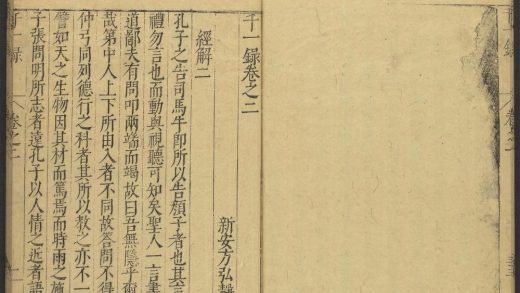 千一錄卷之二
新安方弘
經解二
孔子之告司馬牛即所以告顏子者也其言
禮勿言也而動與視聽可知矣聖人一言
道鄙夫有問叩兩端而竭故曰吾無隱乎爾
哉第中人上下所由入者不同故答問不得
仲弓同列德行之科者其所以教之亦不一
譬如天之生物因其材而篤焉而時雨之施
子張問明所志者遠孔子以人情之近者語
千一錄 卷之二 一